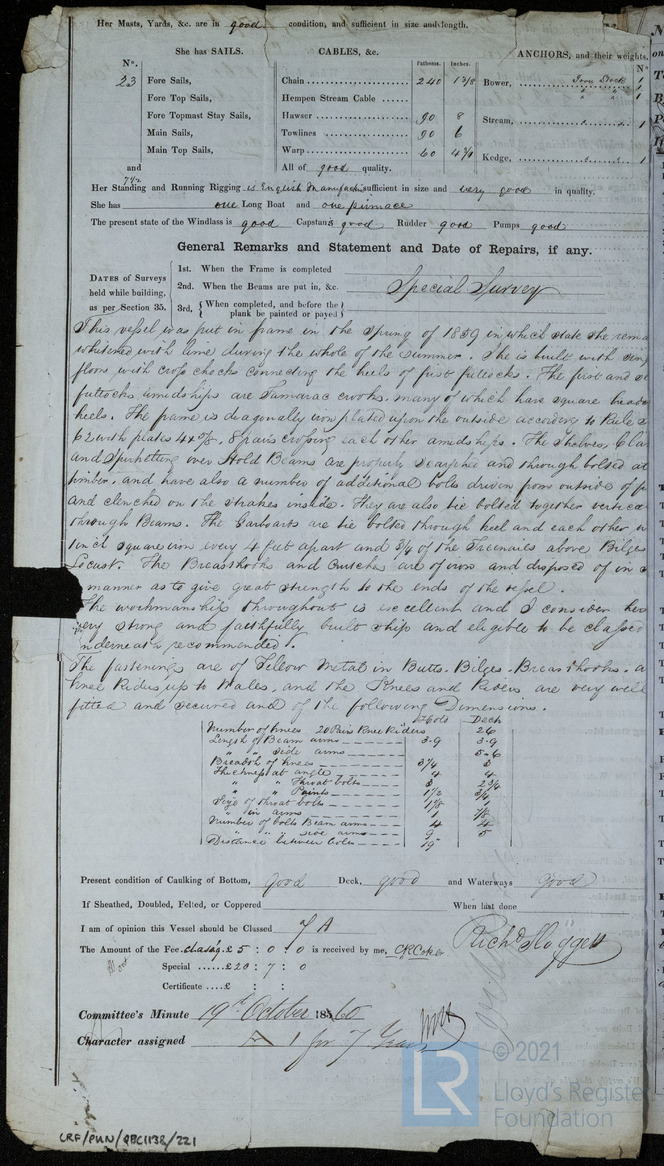 Her Masts, Yards, &c. are in good condition, and sufficient in size and length.
She has SAILS. CABLES, &c. ANCHORS, and their weights.
Nº. Fathoms. Inches. Nº
23 Fore Sails, Chain 240 1 3/8 Bower, Iron Stock 1
Fore Top Sails, Hempen Stream Cable " " 1
Fore Topmast Stay Sails, Hawser 90 8 Stream, 1
Main Sails, Towlines 90 6
Main Top Sails, Warp 60 4½ Kedge, 1
and All of good quality.
Her Standing and Running Rigging is English Manufacr sufficient in size and very good in quality.
She has one Long Boat and one pinnace
The present state of the Windlass is good Capstan is good Rudder good Pumps good
General Remarks and Statement and Date of Repairs, if any.
DATES of Surveys held while building, as per Section 35.
1st. When the Frame is completed
2nd. When the Beams are put in, &c. Special Survey
3rd. When completed, and before the plank be painted or payed
This vessel was put in frame in the Spring of 1859 in which state she rema
whitened with lime during the whole of the Summer. She is built with
floors with cross chocks connecting the heels of first futtocks. The first and
futtocks amidships are Tamarac crooks, many of which have square heads
heels. The frame is diagonally iron plated upon the outside according to Rule
62 with plates 4x5/8, 8 pairs crossing each other amidships. The Shelves, Cla
and Spirketting over Hold Beams are properly scarphed and through bolted at
timber, and have also a number of additional bolts driven from outside of
and clenched on the strakes inside. They are also tie bolted together vertica
through Beams. The Garboards are tie bolted through keel and each other
1 inch square iron every 4 feet apart and 3/4 of the Treenails above Bilges
Locust. The Breasthooks and Crutches are of iron and disposed of in
manner as to give great strength to the ends of the vessel.
The workmanship throughout is excellent and I consider her
very strong and faithfully built ship and eligible to be classed
underneath recommended.
The fastenings are of Yellow Metal in Butts. Bilges. Breasthooks. a
Knee Riders up to Wales, and the Knees and Riders are very well
fitted and secured and of the following Dimensions.
Hold Deck
Number of knees 20 Pairs Knee Riders 26
Length of Beam arms 3.9 3.9
" " side arms 5-6
Breadth of knees 3¾ 3
Thickness at angle 4 4
" " Throat bolts 3 2¼
" " Points 1½ 3/4
Size of throat bolts 1 1/8 1
" in arms 1 7/8
Number of bolts Beam arms 4 4
" " side arms 9 5
Distance between bolts 19
Present condition of Caulking of Bottom, good Deck, good and Waterways good
If Sheathed, Doubled, Felted, or Coppered When last done
I am of opinion this Vessel should be Classed 7 A
The Amount of the Fee £5 : 0 : 0 is received by me,
Special £20 : 7 : 0
Certificate £ : :
Committee's Minute 19th October 1860
Character assigned A 1 for 7 Years
© 2021
LR Lloyd's Register
Foundation
LRF/PUN/QBC1138/221